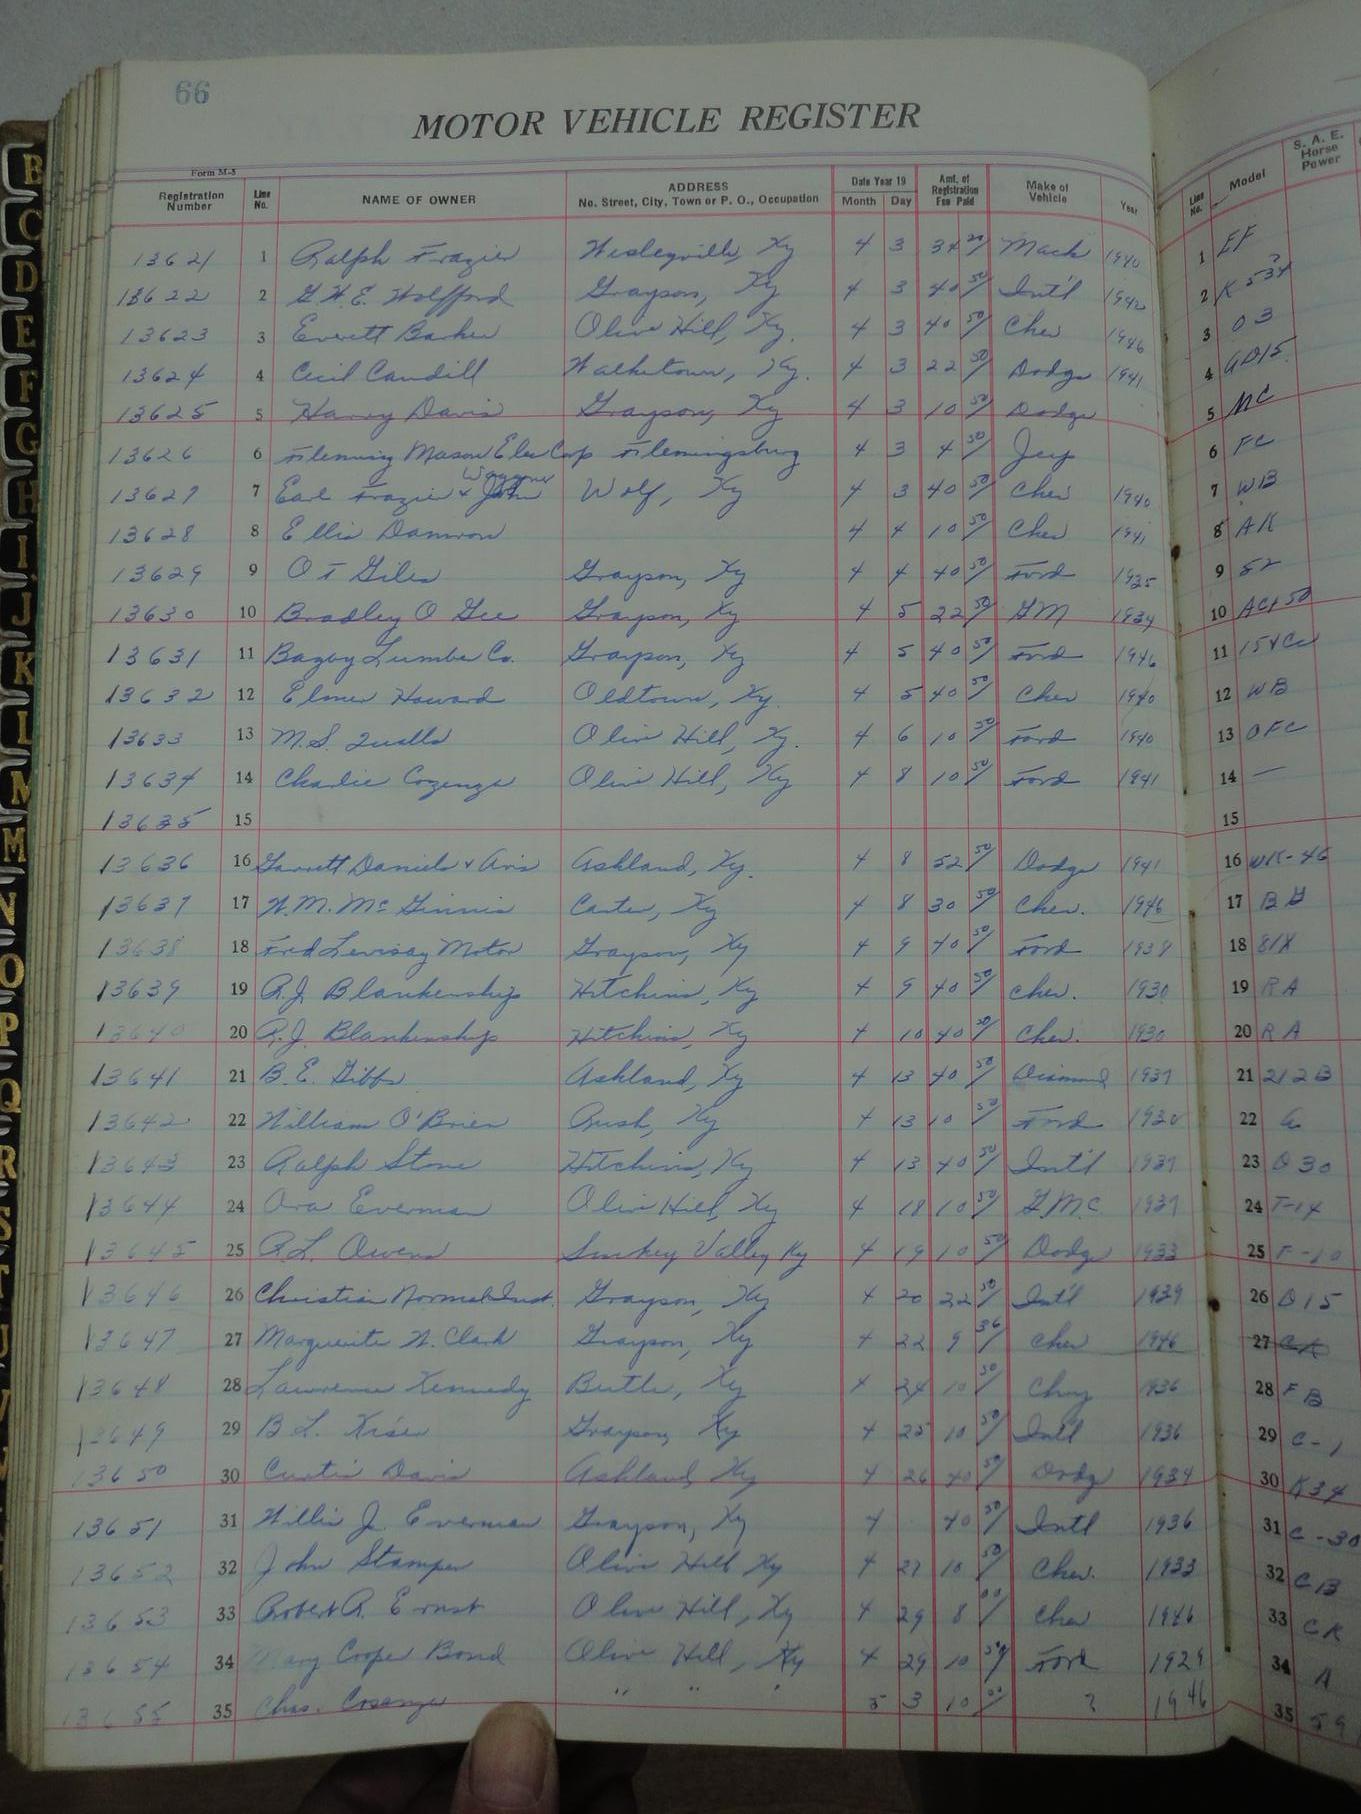 66
MOTOR VEHICLE REGISTER
Form M-5
Registration Number Line No. NAME OF OWNER ADDRESS No. Street, City, Town or P. O., Occupation Date Year 19 Month Day Amt. of Registration Fee Paid Make of Vehicle Year Line No. Model S. A. E. Horse Power
13621 1 Ralph Frazier Wesleyville, Ky 4 3 Mack 1940 1 EF
13622 2 G.W.E. Wolfford Grayson, Ky 4 3 40 50/ Int'l 1942 2
13623 3 Everett Barker Olive Hill, Ky. 4 3 40 50/ Chev 1946 3 03
13624 4 Cecil Caudill Ky. 4 3 22 50/ Dodge 1941 4 GD15
13625 5 Harry Davis Grayson, Ky 4 3 10 50/ Dodge 5 MC
13626 6 Fleming Mason Elec Corp Flemingsburg 4 3 4 50/ Jeep 6 FC
13627 7 Earl Frazier & John Waggoner Wolf, Ky 4 3 40 50/ Chev 1940 7 WB
13628 8 Ellis Damron 4 4 10 50/ Chev 1941 8 AK
13629 9 O T Giles Grayson, Ky 4 4 40 50/ Ford 1935 9 52
13630 10 Bradley O Gee Grayson, Ky 4 5 22 50/ GM 1934 10
13631 11 Bagby Lumber Co. Grayson, Ky 4 5 40 50/ Ford 1946 11
13632 12 Elmer Howard Oldtown, Ky. 4 5 40 50/ Chev 1940 12 WB
13633 13 M.S. Qualls Olive Hill, Ky. 4 6 10 50/ Ford 1940 13 OFC
13634 14 Charlie Cozenza Olive Hill, Ky 4 8 10 50/ Ford 1941 14 —
13635 15 15
13636 16 Garrett Daniels & Avis Ashland, Ky. 4 8 52 50/ Dodge 1941 16 WK-46
13637 17 W.M. McGinnis Carter, Ky 4 8 30 50/ Chev. 1946 17 BG
13638 18 Ford Levisay Motor Grayson, Ky 4 9 40 50/ Ford 1938 18 81X
13639 19 R.J. Blankenship Hitchins, Ky 4 9 40 50/ Chev. 1930 19 RA
13640 20 R.J. Blankenship Hitchins, Ky 4 10 40 50/ Chev. 1930 20 RA
13641 21 B.E. Gibbs Ashland, Ky 4 13 40 50/ Diamond 1937 21 212B
13642 22 William O'Brien Rush, Ky 4 13 10 50/ Ford 1930 22
13643 23 Ralph Stone Hitchins, Ky 4 13 40 50/ Int'l 1937 23 D30
13644 24 Ora Everman Olive Hill, Ky 4 18 10 50/ G.M.C 1937 24 T-14
13645 25 R.L. Owens Smokey Valley Ky 4 19 10 50/ Dodge 1933 25 F-10
13646 26 Christian Normal Inst. Grayson, Ky 4 20 22 50/ Int'l 1939 26 D15
13647 27 Marguerite W. Clark Grayson, Ky 4 22 9 36/ Chev 1946 27 CK
13648 28 Lawrence Kennedy Ky 4 24 10 50/ 1936 28 FB
13649 29 B L. Kiser Grayson, Ky 4 25 10 50/ Int'l 1936 29 C-1
13650 30 Curtis Davis Ashland, Ky 4 26 40 50/ Dodg 1934 30 K34
13651 31 Willie J. Everman Grayson, Ky 4 40 50/ Intl 1936 31 C-30
13652 32 John Stamper Olive Hill Ky 4 27 10 50/ Chev. 1933 32 CB
13653 33 Robert R. Ernst Olive Hill, Ky 4 29 8 00/ Chev 1946 33 CK
13654 34 Mary Cooper Bond Olive Hill, Ky 4 29 10 50/ Ford 1929 34 A
13655 35 Chas. Cosenza " " " 5 3 10 ? 1946 35 59
B
C
D
E
F
G
H
I
J
K
L
M
M
N
O
P
Q
R
S
T
U
V